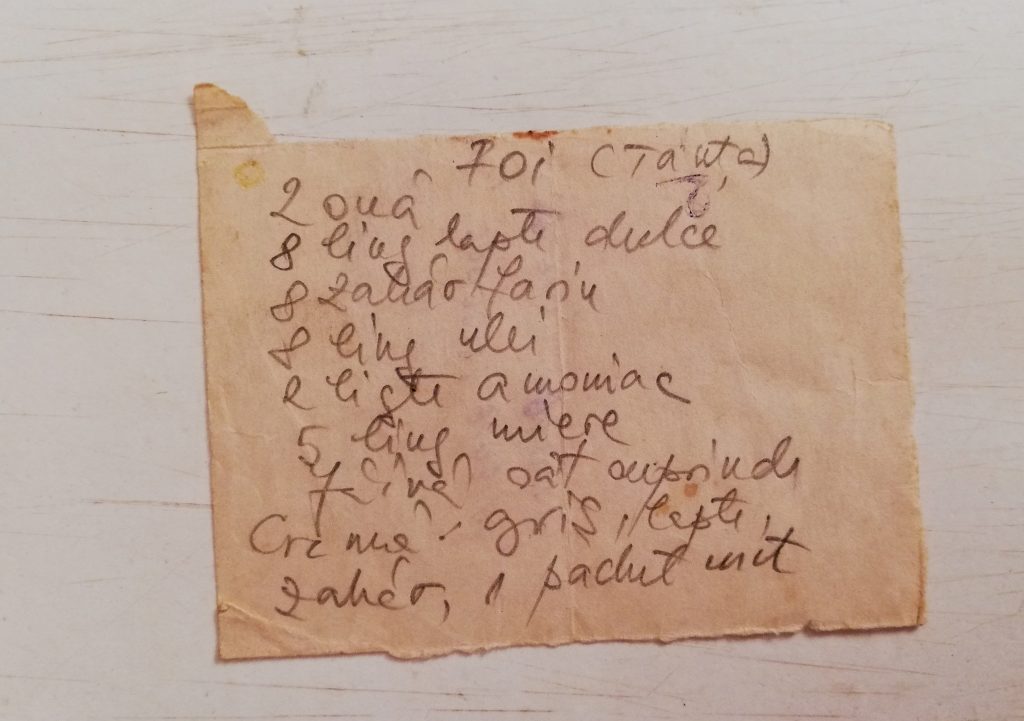 Foi (Tanța)
2 ouă
8 ling lapte dulce
8 zahăr farin
8 ling ulei
2 ligțe amoniac
5 ling miere
făină cât cuprinde
Cremă: griș, lapte,
zahăr, 1 pachet unt